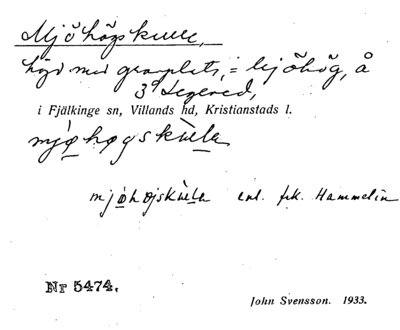 Mjöhögskulle,
höjd med gravplats, = Mjöhög, å
3ª Legeved,
i Fjälkinge sn, Villands hd, Kristianstads l.
mjøhøgskùla
mjøhøjskùla enl. frk. Hammelin
Nr 5474.
John Svensson. 1933.